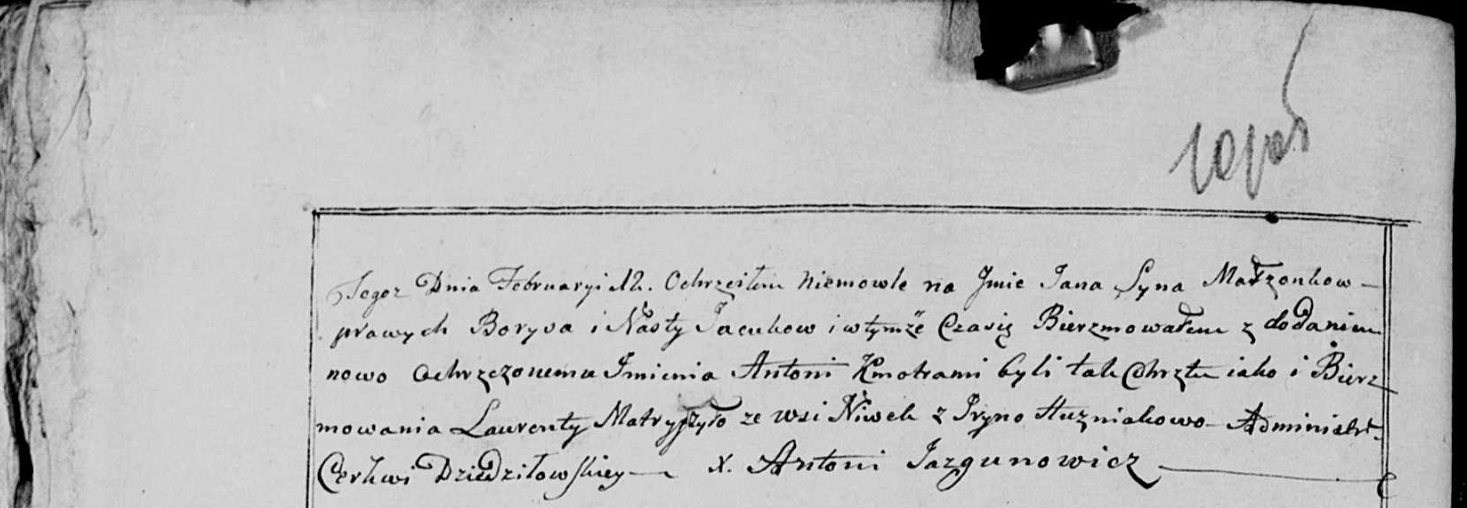 Tegoz Dnia Februaryi 12. Ochrzciłem Niemowle na Jmie Jana Syna Małzonkow-
prawych Borysa i Nasty Jacukow i wtymże Czasię Bierzmowałem z dodaniem
nowo ochrzczonemu Jmienia Antoni Kmotrami byli tak Chrztu iako i Bierz
mowania Laurenty Matryszyło ze wsi Niwek z Jryno Huzniakowo- Administr.
Cerkwi Dziedziłowskiey- X. Antoni Jazgunowicz